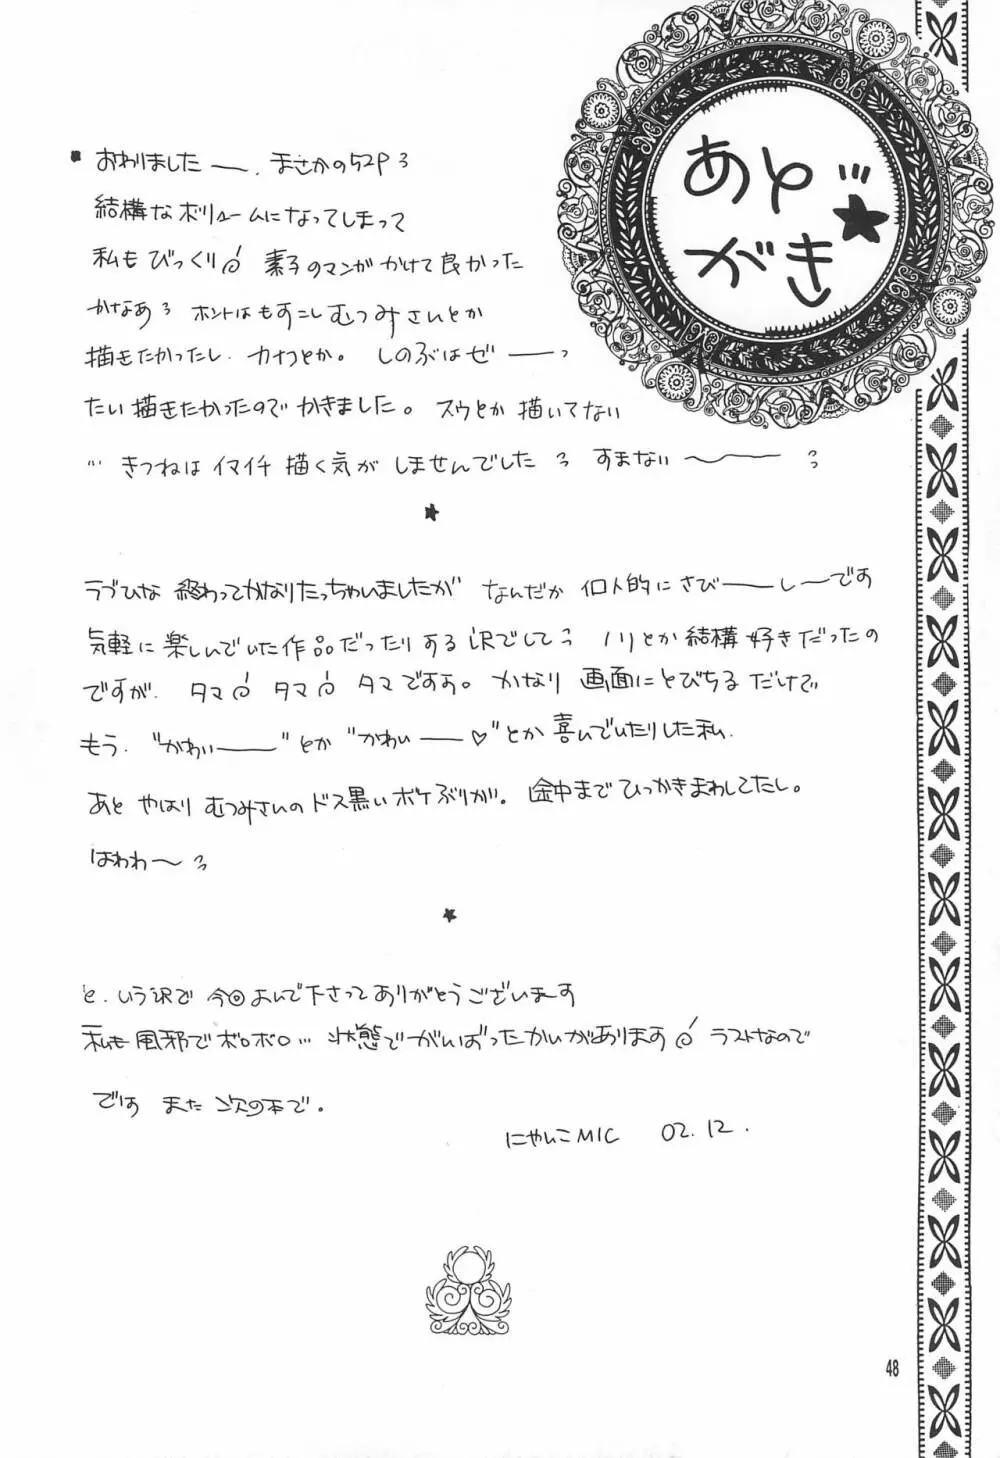 あと
がき
おわりましたー、まさかの52P
結構なボリュームになってしまって
私もびっくり 素子のマンガかけて良かった
かなあ ホントはもすこしむつみさんとか
描きたかったし、カナコとか。しのぶはぜーっ
たい描きたかったのでかきました。スウとか描いてない
…きつねはイマイチ描く気がしませんでした すまないー
ラブひな終わってかなりたっちゃいましたが なんだか個人的にさびーしーです
気軽に楽しんでいた作品だったりする訳でして ノリとか結構好きだったの
ですが、タマ タマ タマですよ。かなり画面にとびちるだけで
もう、"かわいーー"とか"かわいー♡"とか喜んでいたりした私、
あと やはりむつみさんのドス黒いボケぶりが。途中までひっかきまわしてたし。
はわわ〜
と、いう訳で今回よんで下さってありがとうございまーす
私も風邪でボロボロ…状態でがんばったかいがあります ラストなので
では また次の本で。
にゃんこMIC 02.12.
48